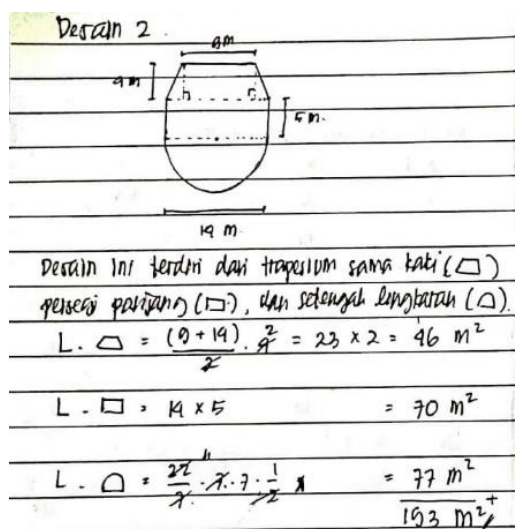 Desain 2.
9 m
4 m
5 m.
14 m
Desain ini terdiri dari trapesium sama kaki (⏢)
persegi panjang (▭), dan setengah lingkaran (⌓).
L. ⏢ = (9 + 14)/2 . 4 2 = 23 × 2 = 46 m²
L. ▭ = 14 × 5 = 70 m²
L. ⌓ = 22/7 11 . 7 . 7 . 1/2 = 77 m²
193 m² +